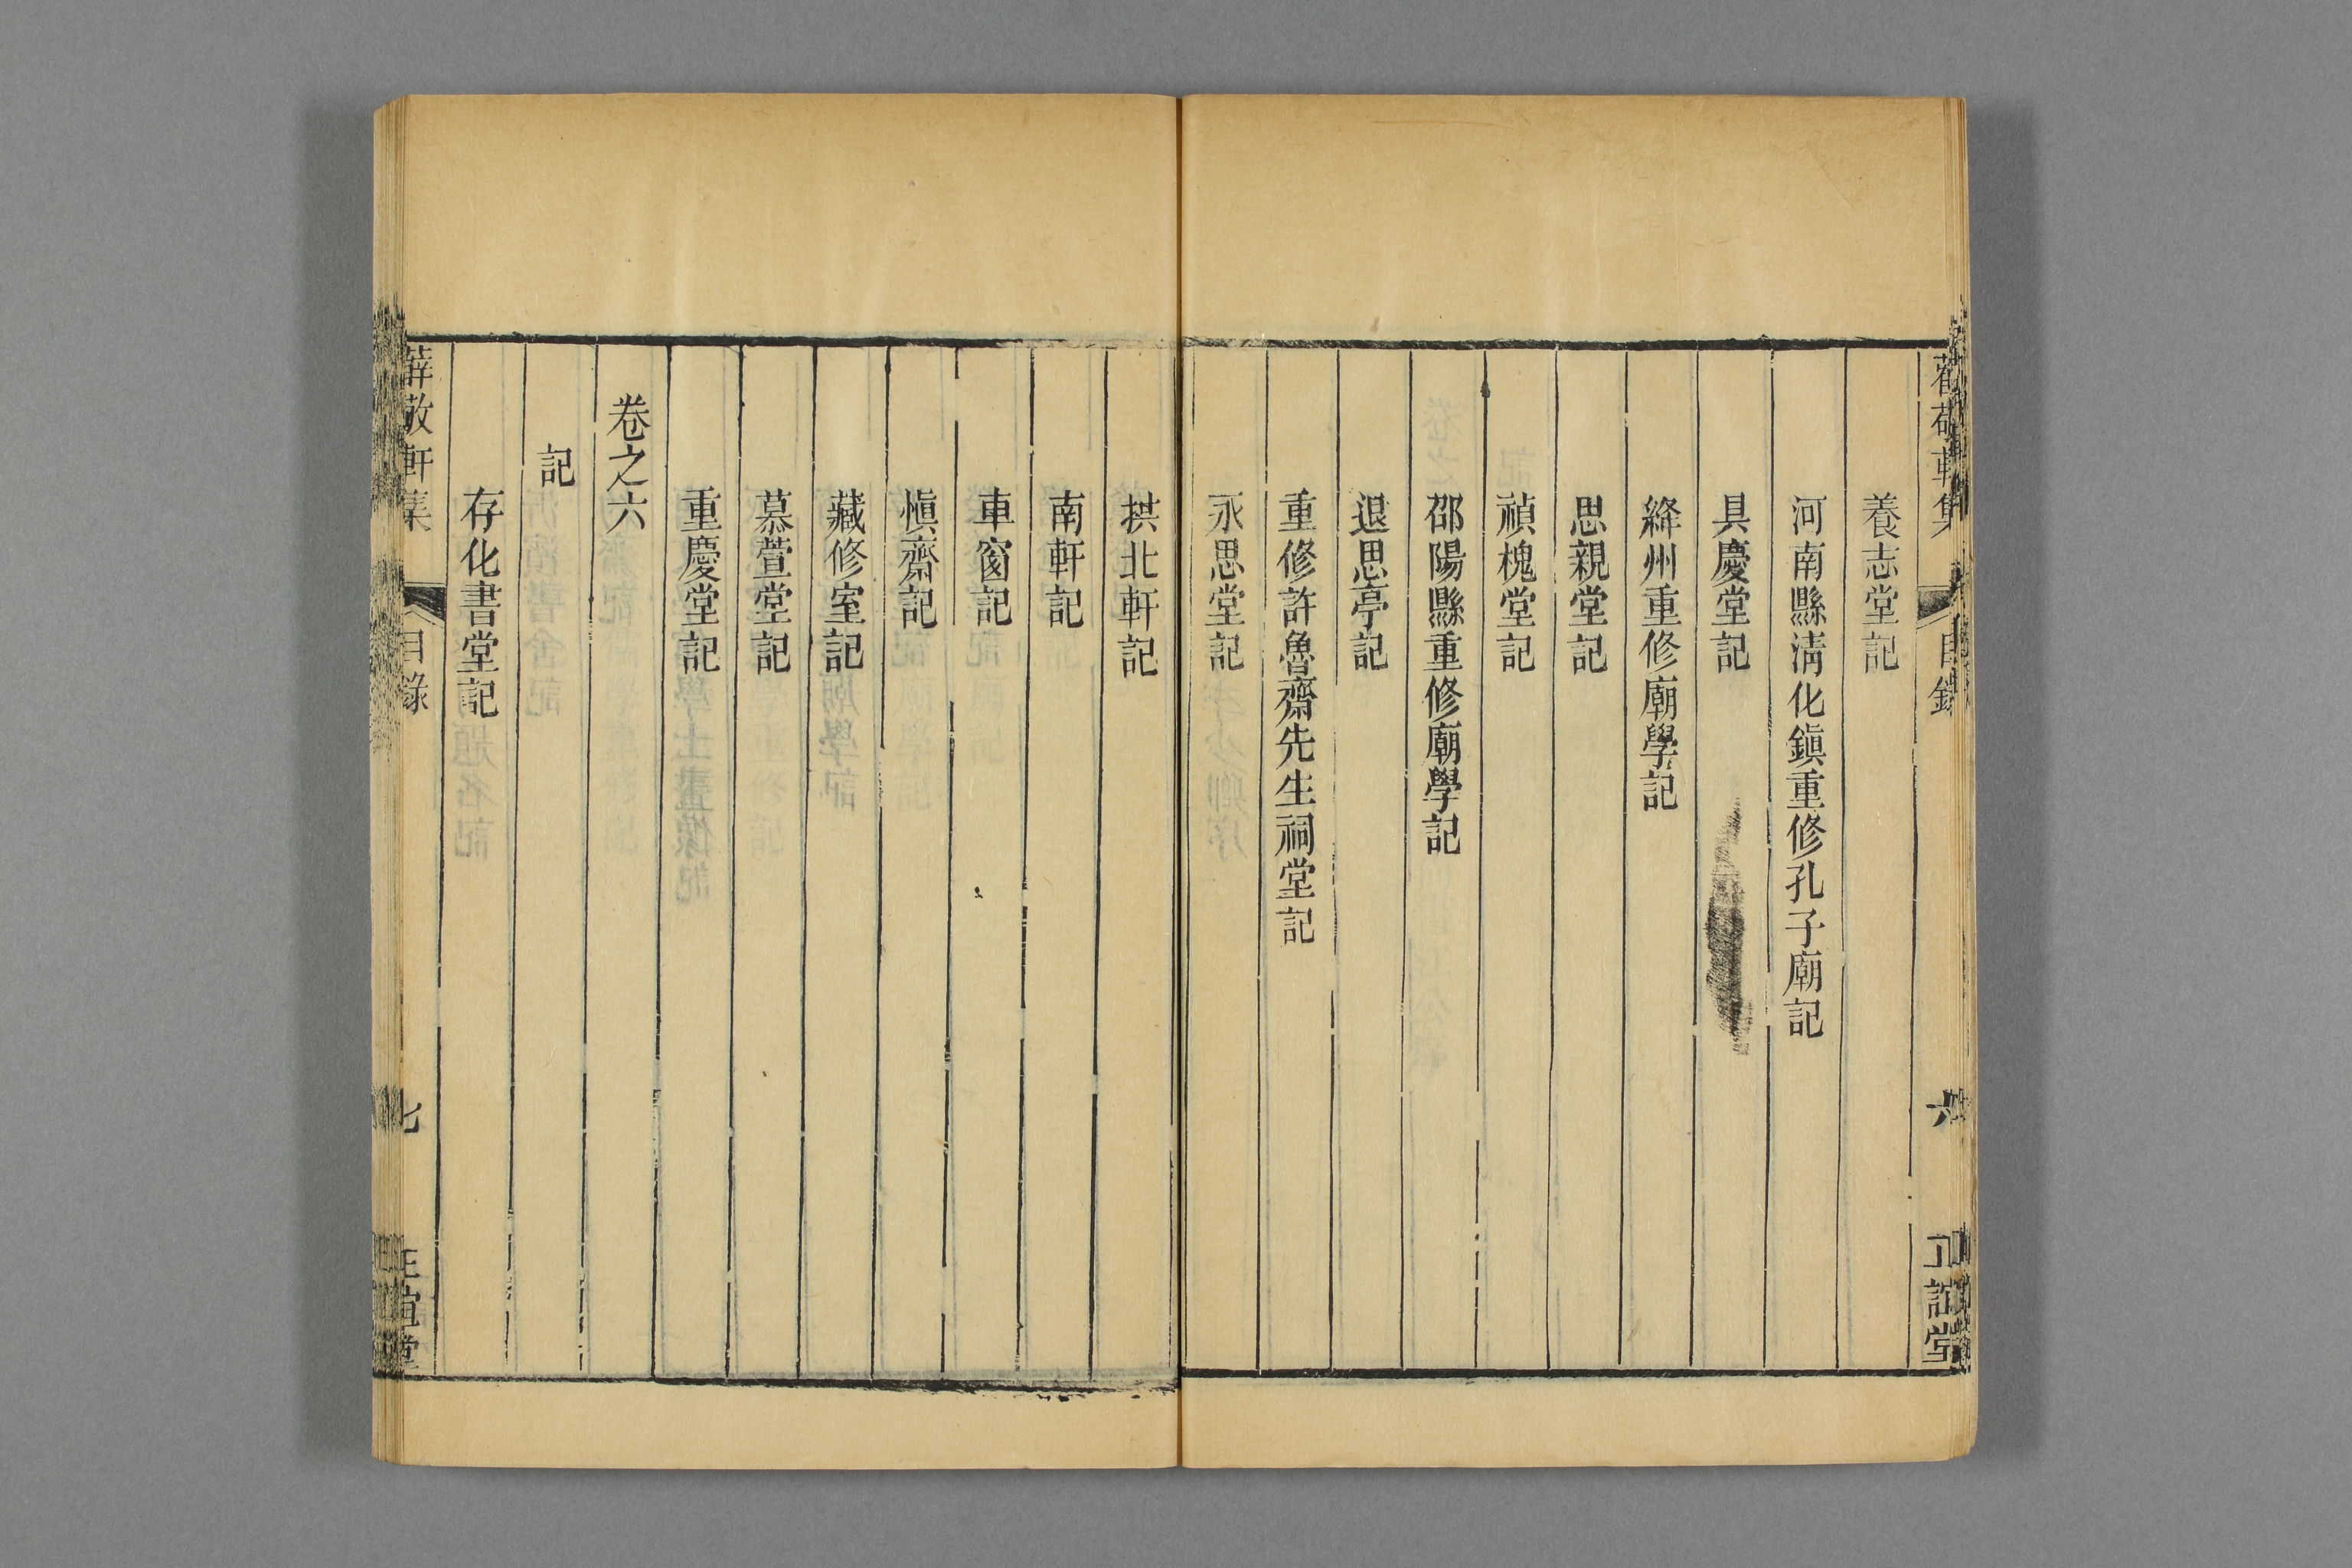 養志堂記
河南縣淸化鎭重修孔子廟記
具慶堂記
絳州重修廟學記
思親堂記
禎槐堂記
邵陽縣重修廟學記
退思亭記
重修許魯齋先生祠堂記
永思堂記
拱北軒記
南軒記
車窗記
愼齋記
藏修室記
慕萱堂記
重慶堂記
卷之六
記
存化書堂記
薛敬軒集
目錄
七
正誼堂